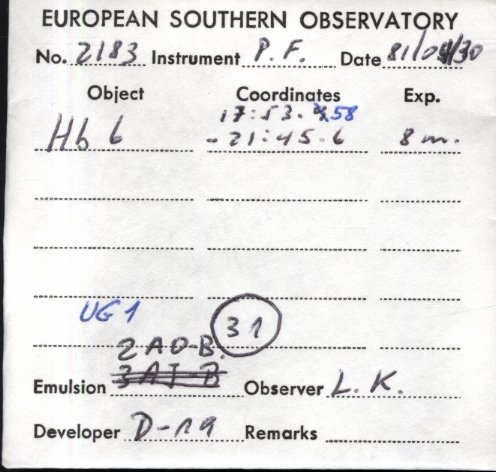 EUROPEAN SOUTHERN OBSERVATORY
No. 2183 Instrument P.F. Date
Object Coordinates Exp.
17:53. 58
Hb 6 -21:45.6 8 m.
UG1
31
2 A O-B.
3 A J-B
Emulsion Observer L.K.
Developer D-19 Remarks